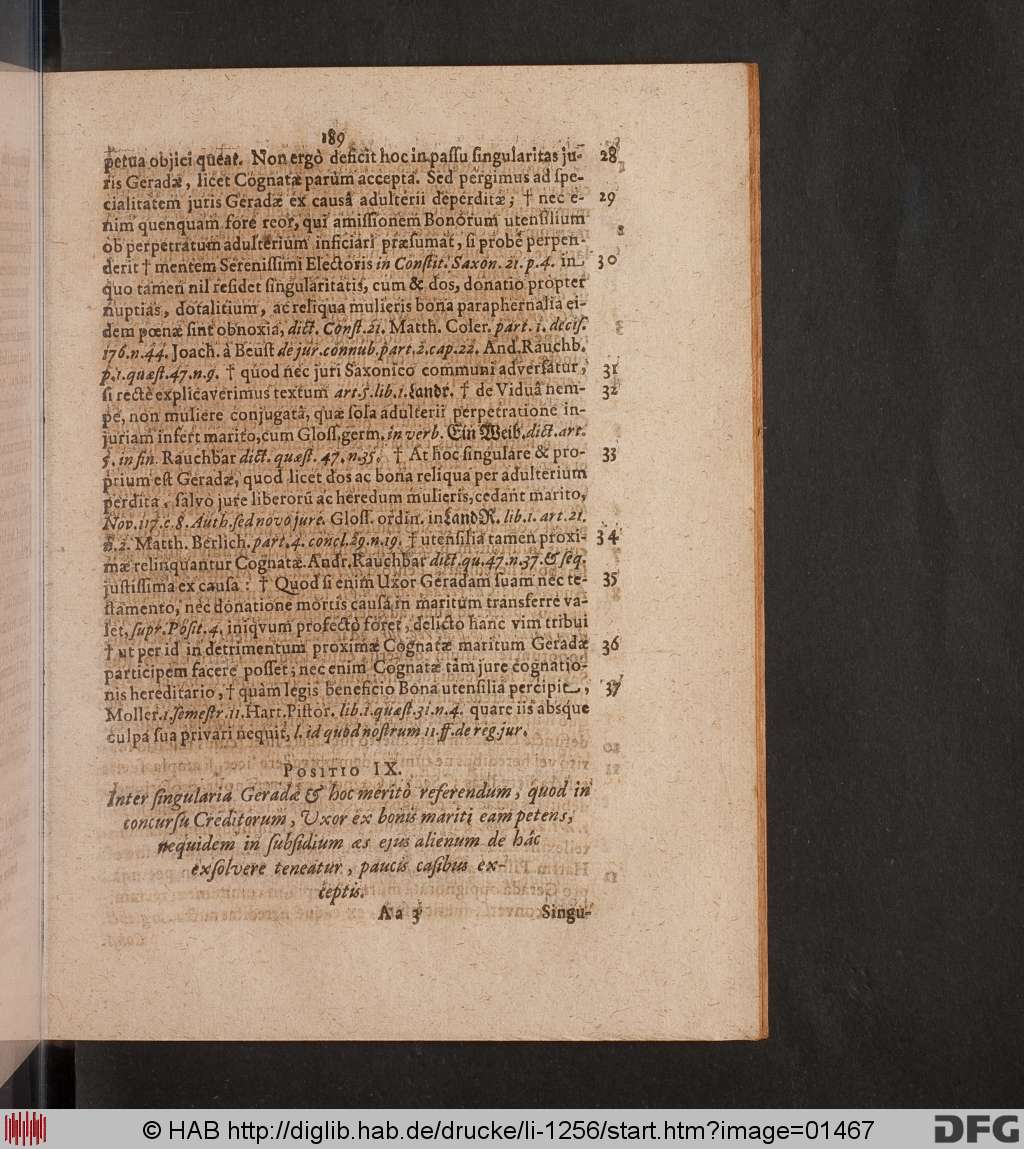 189
petua objici queat. Non ergò deficit hoc in passu singularitas ju- 28
ris Geradæ, licet Cognatæ parùm accepta. Sed pergimus ad spe-
cialitatem juris Geradæ ex causâ adulterii deperditæ; † nec e- 29
nim quenquam fore reor, qui amissionem Bonorum utensilium
ob perpetratum adulterium inficiari præsumat, si probè perpen-
derit † mentem Serenissimi Electoris in Constit. Saxon. 21. p. 4. in 30
quo tamen nil residet singularitatis, cum & dos, donatio propter
nuptias, dotalitium, ac reliqua mulieris bona paraphernalia ei-
dem pœnæ sint obnoxia, dict. Const. 21. Matth. Coler. part. 1. decis.
176. n. 44. Joach. à Beust de jur. connub. part. 2. cap. 22. And. Rauchb.
p. 1. quæst. 47. n. 9. † quòd nec juri Saxonico communi adversatur, 31
si rectè explicaverimus textum art. 5. lib. 1. Landr. † de Viduâ nem- 32
pe, non muliere conjugatâ, quæ sola adulterii perpetratione in-
juriam infert marito, cum Gloss. germ. in verb. Ein Weib. dict. art.
5. in fin. Rauchbar dict. quæst. 47. n. 35. † At hoc singulare & pro- 33
prium est Geradæ, quod licet dos ac bona reliqua per adulterium
perdita, salvo jure liberorũ ac heredum mulieris, cedant marito,
Nov. 117. c. 8. Auth. sed novo jure. Gloss. ordin. in LandR. lib. 1. art. 21.
n. 2. Matth. Berlich. part. 4. concl. 29. n. 19. † utensilia tamen proxi- 34
mæ relinquantur Cognatæ. Andr. Rauchbar dict. qu. 47. n. 37. & seq.
justissima ex causa: † Quòd si enim Uxor Geradam suam nec te- 35
stamento, nec donatione mortis causâ in maritum transferre va-
let, supr. Posit. 4. iniqvum profectò foret, delicto hanc vim tribui
† ut per id in detrimentum proximæ Cognatæ maritum Geradæ 36
participem facere posset; nec enim Cognatæ tàm jure cognatio-
nis hereditario, † quàm legis beneficio Bona utensilia percipit, 37
Moller. 1. semestr. 11. Hart. Pistor. lib. 1. quæst. 31. n. 4. quare iis absque
culpa sua privari nequit, l. id quod nostrum 11. ff. de reg. jur.
POSITIO IX.
Inter singularia Geradæ & hoc meritò referendum, quod in
concursu Creditorum, Uxor ex bonis mariti eam petens,
nequidem in subsidium æs ejus alienum de hâc
exsolvere teneatur, paucis casibus ex-
ceptis.
Aa 3 Singu-
© HAB http://diglib.hab.de/drucke/li-1256/start.htm?image=01467
DFG